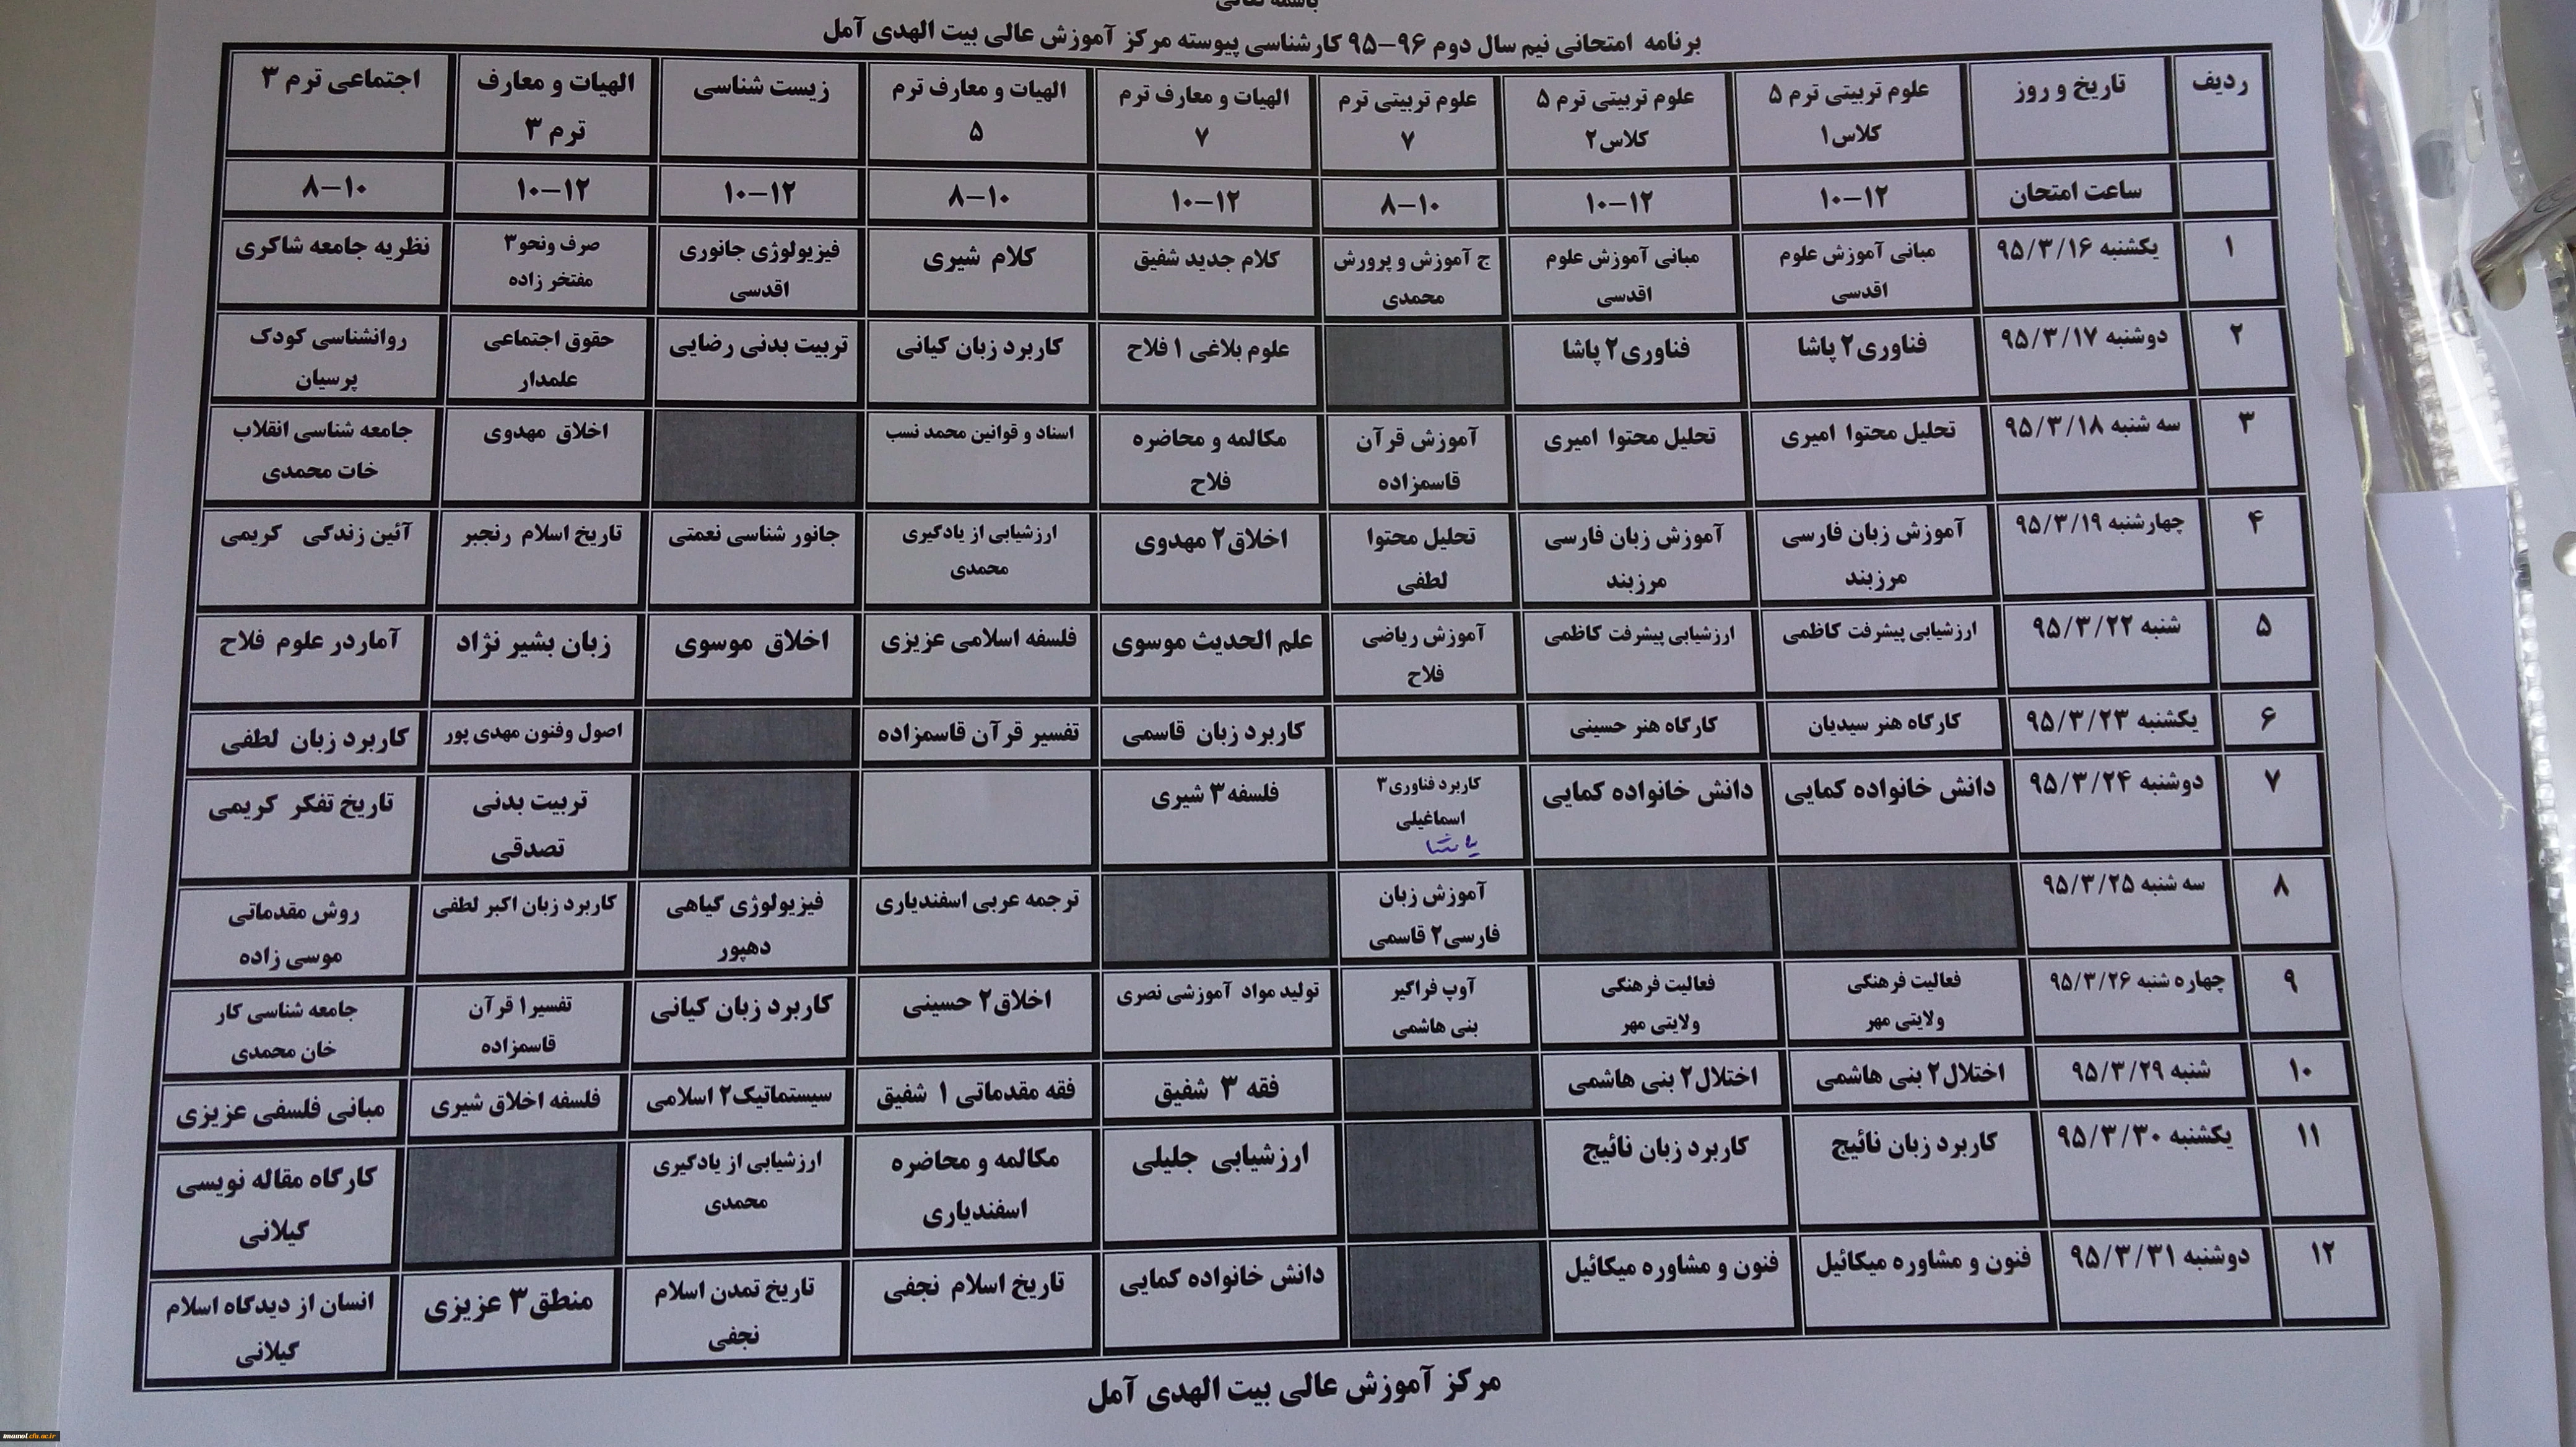 باسمه تعالی
برنامه امتحانی نیم سال دوم ۹۶-۹۵ کارشناسی پیوسته مرکز آموزش عالی بیت الهدی آمل
ردیف تاریخ و روز علوم تربیتی ترم ۵ علوم تربیتی ترم ۵ علوم تربیتی ترم الهیات و معارف ترم الهیات و معارف ترم زیست شناسی الهیات و معارف اجتماعی ترم ۳
کلاس۱ کلاس۲ ۷ ۷ ۵ ترم ۳
ساعت امتحان ۱۲-۱۰ ۱۲-۱۰ ۱۰-۸ ۱۲-۱۰ ۱۰-۸ ۱۲-۱۰ ۱۲-۱۰ ۱۰-۸
۱ یکشنبه ۹۵/۳/۱۶ مبانی آموزش علوم مبانی آموزش علوم ج آموزش و پرورش کلام جدید شفیق کلام شیری فیزیولوژی جانوری صرف ونحو۳ نظریه جامعه شاکری
اقدسی اقدسی محمدی اقدسی مفتخر زاده
۲ دوشنبه ۹۵/۳/۱۷ فناوری۲ پاشا فناوری۲ پاشا علوم بلاغی ۱ فلاح کاربرد زبان کیانی تربیت بدنی رضایی حقوق اجتماعی روانشناسی کودک
علمدار پرسیان
۳ سه شنبه ۹۵/۳/۱۸ تحلیل محتوا امیری تحلیل محتوا امیری آموزش قرآن مکالمه و محاضره اسناد و قوانین محمد نسب اخلاق مهدوی جامعه شناسی انقلاب
قاسمزاده فلاح خات محمدی
۴ چهارشنبه ۹۵/۳/۱۹ آموزش زبان فارسی آموزش زبان فارسی تحلیل محتوا اخلاق۲ مهدوی ارزشیابی از یادگیری جانور شناسی نعمتی تاریخ اسلام رنجبر آئین زندگی کریمی
مرزبند مرزبند لطفی محمدی
۵ شنبه ۹۵/۳/۲۲ ارزشیابی پیشرفت کاظمی ارزشیابی پیشرفت کاظمی آموزش ریاضی علم الحدیث موسوی فلسفه اسلامی عزیزی اخلاق موسوی زبان بشیر نژاد آماردر علوم فلاح
فلاح
۶ یکشنبه ۹۵/۳/۲۳ کارگاه هنر سیدیان کارگاه هنر حسینی کاربرد زبان قاسمی تفسیر قرآن قاسمزاده اصول وفنون مهدی پور کاربرد زبان لطفی
۷ دوشنبه ۹۵/۳/۲۴ دانش خانواده کمایی دانش خانواده کمایی کاربرد فناوری۳ فلسفه۳ شیری تربیت بدنی تاریخ تفکر کریمی
اسماعیلی تصدقی
پاشا
۸ سه شنبه ۹۵/۳/۲۵ آموزش زبان ترجمه عربی اسفندیاری فیزیولوژی گیاهی کاربرد زبان اکبر لطفی روش مقدماتی
فارسی۲ قاسمی دهپور موسی زاده
۹ چهاره شنبه ۹۵/۳/۲۶ فعالیت فرهنگی فعالیت فرهنگی آوپ فراگیر تولید مواد آموزشی نصری اخلاق۲ حسینی کاربرد زبان کیانی تفسیر۱ قرآن جامعه شناسی کار
ولایتی مهر ولایتی مهر بنی هاشمی قاسمزاده خان محمدی
۱۰ شنبه ۹۵/۳/۲۹ اختلال۲ بنی هاشمی اختلال۲ بنی هاشمی فقه ۳ شفیق فقه مقدماتی ۱ شفیق سیستماتیک۲ اسلامی فلسفه اخلاق شیری مبانی فلسفی عزیزی
۱۱ یکشنبه ۹۵/۳/۳۰ کاربرد زبان نائیج کاربرد زبان نائیج ارزشیابی جلیلی مکالمه و محاضره ارزشیابی از یادگیری کارگاه مقاله نویسی
اسفندیاری محمدی گیلانی
۱۲ دوشنبه ۹۵/۳/۳۱ فنون و مشاوره میکائیل فنون و مشاوره میکائیل دانش خانواده کمایی تاریخ اسلام نجفی تاریخ تمدن اسلام منطق۳ عزیزی انسان از دیدگاه اسلام
نجفی گیلانی
مرکز آموزش عالی بیت الهدی آمل
imamol.cfu.ac.ir